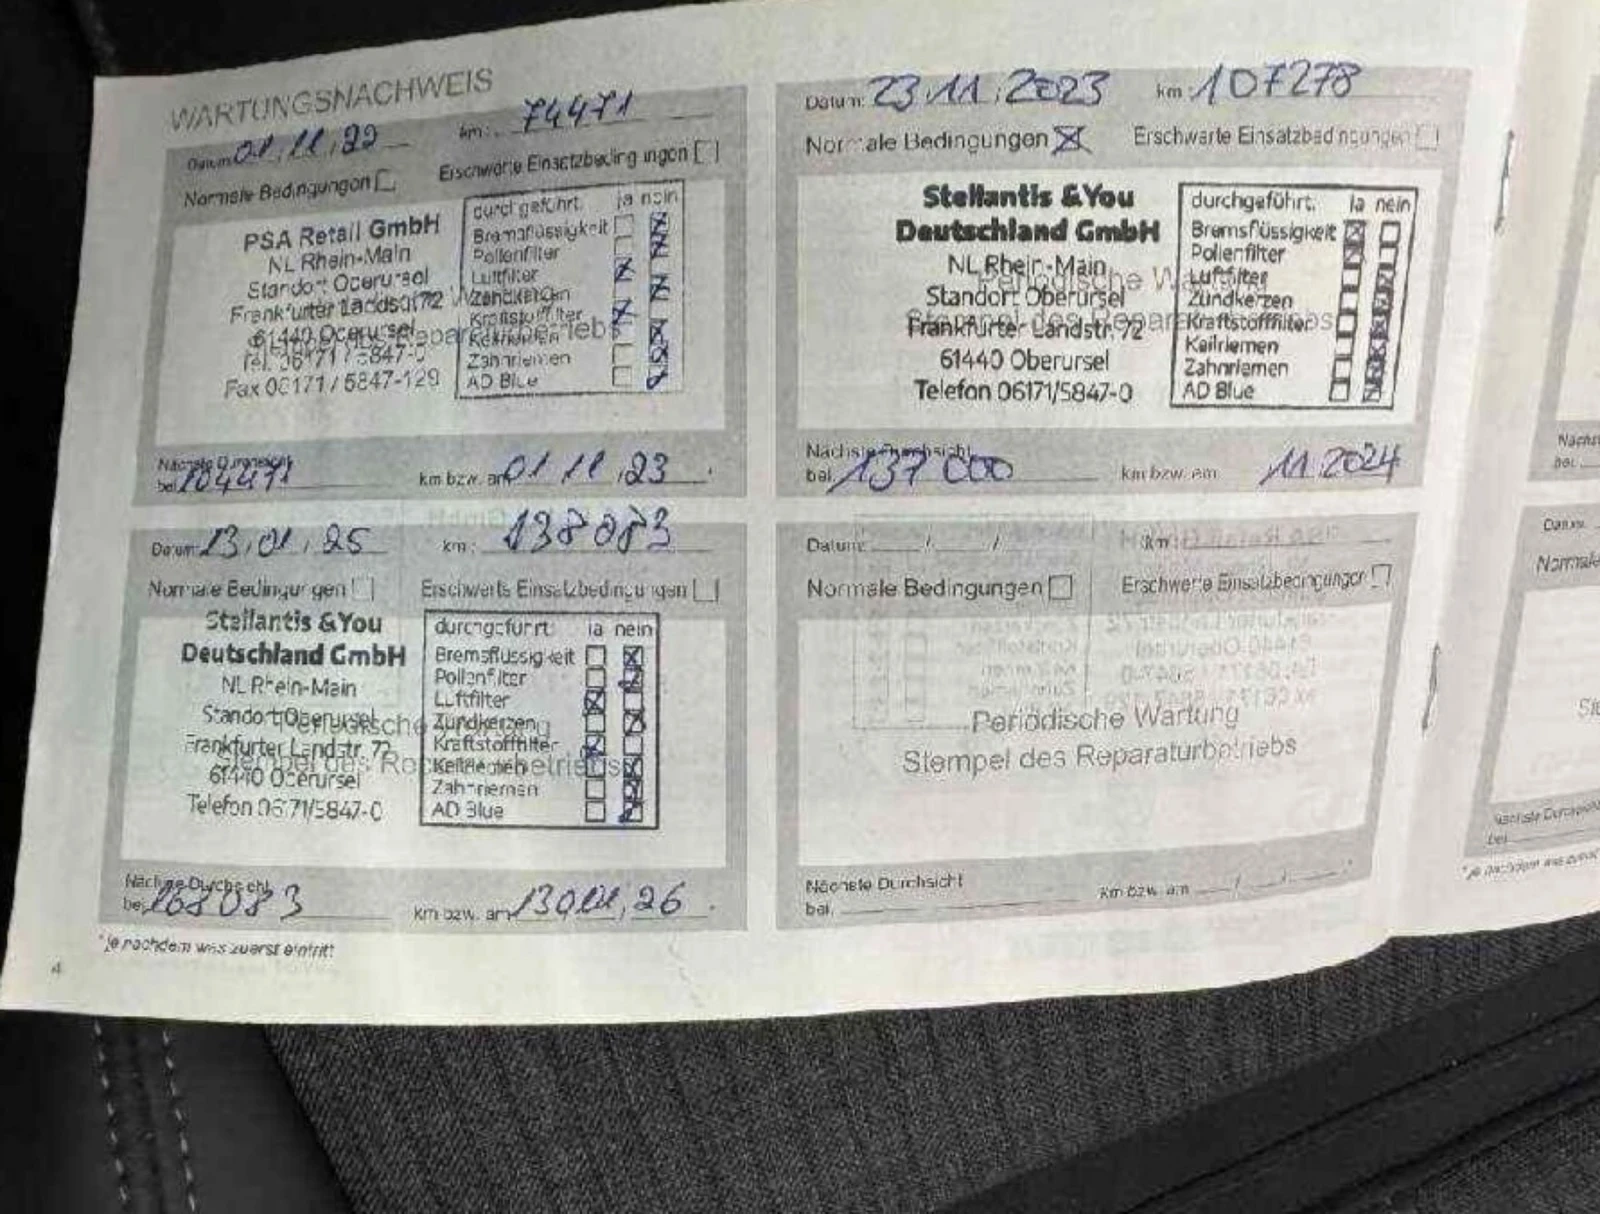 WARTUNGSNACHWEIS
Datum: 01.11.22 km: 74471
Normale Bedingungen Erschwerte Einsatzbedingungen
PSA Retail GmbH
NL Rhein-Main
Standort Oberursel
Frankfurter Landstr. 72
61440 Oberursel
Tel. 06171 / 5847-0
Fax 06171 / 5847-129
durchgeführt: ja nein
Bremsflüssigkeit
Pollenfilter
Luftfilter
Zündkerzen
Kraftstofffilter
Keilriemen
Zahnriemen
AD Blue
Nächste Durchsicht
bei 104471 km bzw. am 01.11.23
Datum: 23.11.2023 km: 107278
Normale Bedingungen Erschwerte Einsatzbedingungen
Stellantis &You
Deutschland GmbH
NL Rhein-Main
Standort Oberursel
Frankfurter Landstr. 72
61440 Oberursel
Telefon 06171/5847-0
Periodische
Stempel des
durchgeführt: ja nein
Bremsflüssigkeit
Pollenfilter
Luftfilter
Zündkerzen
Kraftstofffilter
Keilriemen
Zahnriemen
AD Blue
Nächste Durchsicht
bei 137 000 km bzw. am 11.2024
Datum: 13.01.25 km: 138083
Normale Bedingungen Erschwerte Einsatzbedingungen
Stellantis &You
Deutschland GmbH
NL Rhein-Main
Standort Oberursel
Frankfurter Landstr. 72
61440 Oberursel
Telefon 06171/5847-0
durchgeführt: ja nein
Bremsflüssigkeit
Pollenfilter
Luftfilter
Zündkerzen
Kraftstofffilter
Keilriemen
Zahnriemen
AD Blue
Nächste Durchsicht
bei 168083 km bzw. am 13.01.26
Datum: / / km:
Normale Bedingungen Erschwerte Einsatzbedingungen
Periodische Wartung
Stempel des Reparaturbetriebs
Nächste Durchsicht
bei km bzw. am / /
*je nachdem was zuerst eintritt
4
bei
Datum
Normale
Nächste Durchsicht
bei
*je nachdem was zuerst